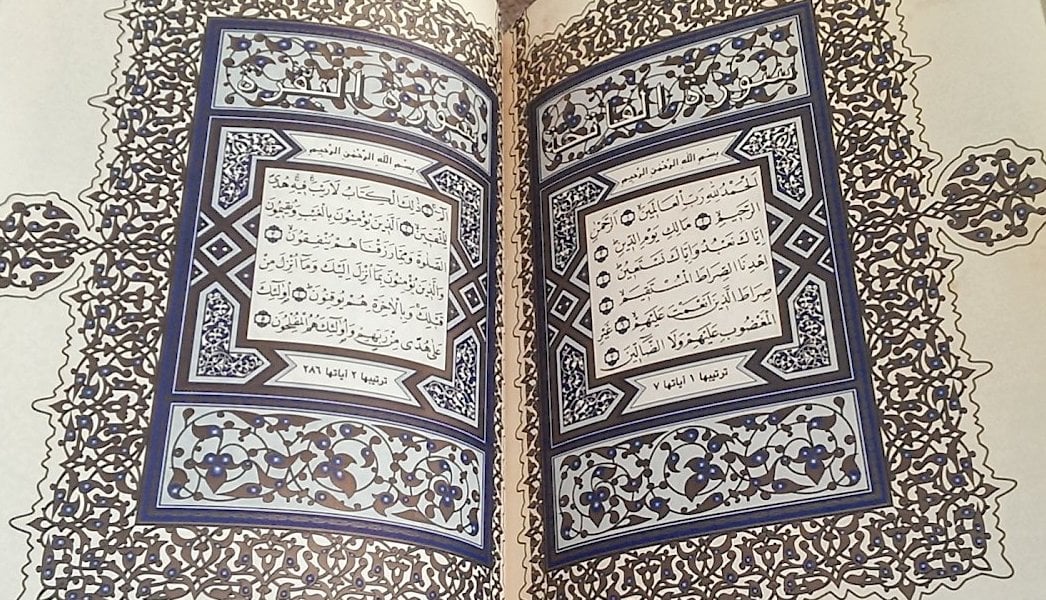 سورة الفاتحة
بسم الله الرحمن الرحيم
الْحَمْدُ لِلَّهِ رَبِّ الْعَالَمِينَ الرَّحْمَنِ
الرَّحِيمِ مَالِكِ يَوْمِ الدِّينِ
إِيَّاكَ نَعْبُدُ وَإِيَّاكَ نَسْتَعِينُ
اهْدِنَا الصِّرَاطَ الْمُسْتَقِيمَ
صِرَاطَ الَّذِينَ أَنْعَمْتَ عَلَيْهِمْ غَيْرِ
الْمَغْضُوبِ عَلَيْهِمْ وَلَا الضَّالِّينَ
ترتيبها ١ آياتها ٧
سورة البقرة
بسم الله الرحمن الرحيم
الم ذَلِكَ الْكِتَابُ لَا رَيْبَ فِيهِ هُدًى
لِلْمُتَّقِينَ الَّذِينَ يُؤْمِنُونَ بِالْغَيْبِ وَيُقِيمُونَ
الصَّلَاةَ وَمِمَّا رَزَقْنَاهُمْ يُنْفِقُونَ
وَالَّذِينَ يُؤْمِنُونَ بِمَا أُنْزِلَ إِلَيْكَ وَمَا أُنْزِلَ مِنْ
قَبْلِكَ وَبِالْآخِرَةِ هُمْ يُوقِنُونَ أُولَئِكَ
عَلَى هُدًى مِنْ رَبِّهِمْ وَأُولَئِكَ هُمُ الْمُفْلِحُونَ
ترتيبها ٢ آياتها ٢٨٦